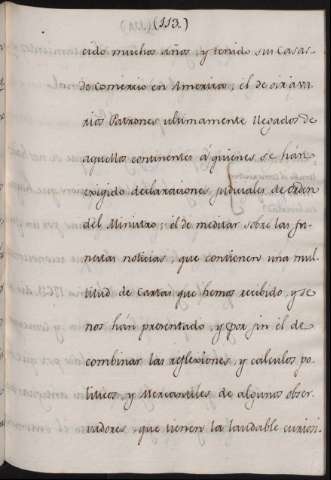 (113.)
cido muchos años, y tenido sus Casas
de Comercio en America; el de oir a va-
rios Patrones ultimamente llegados de
aquellos continentes á quienes se hán
exigido declaraciones judiciales de orden
del Ministro; el de meditar sobre las fu-
nestas noticias que contienen una mul-
titud de Cartas que hemos recibido, y se
nos hán presentado, y por fin el de
combinar las reflexiones, y calculos po-
liticos, y Mercantiles de algunos obser-
vadores, que tienen la laudable curiosi-